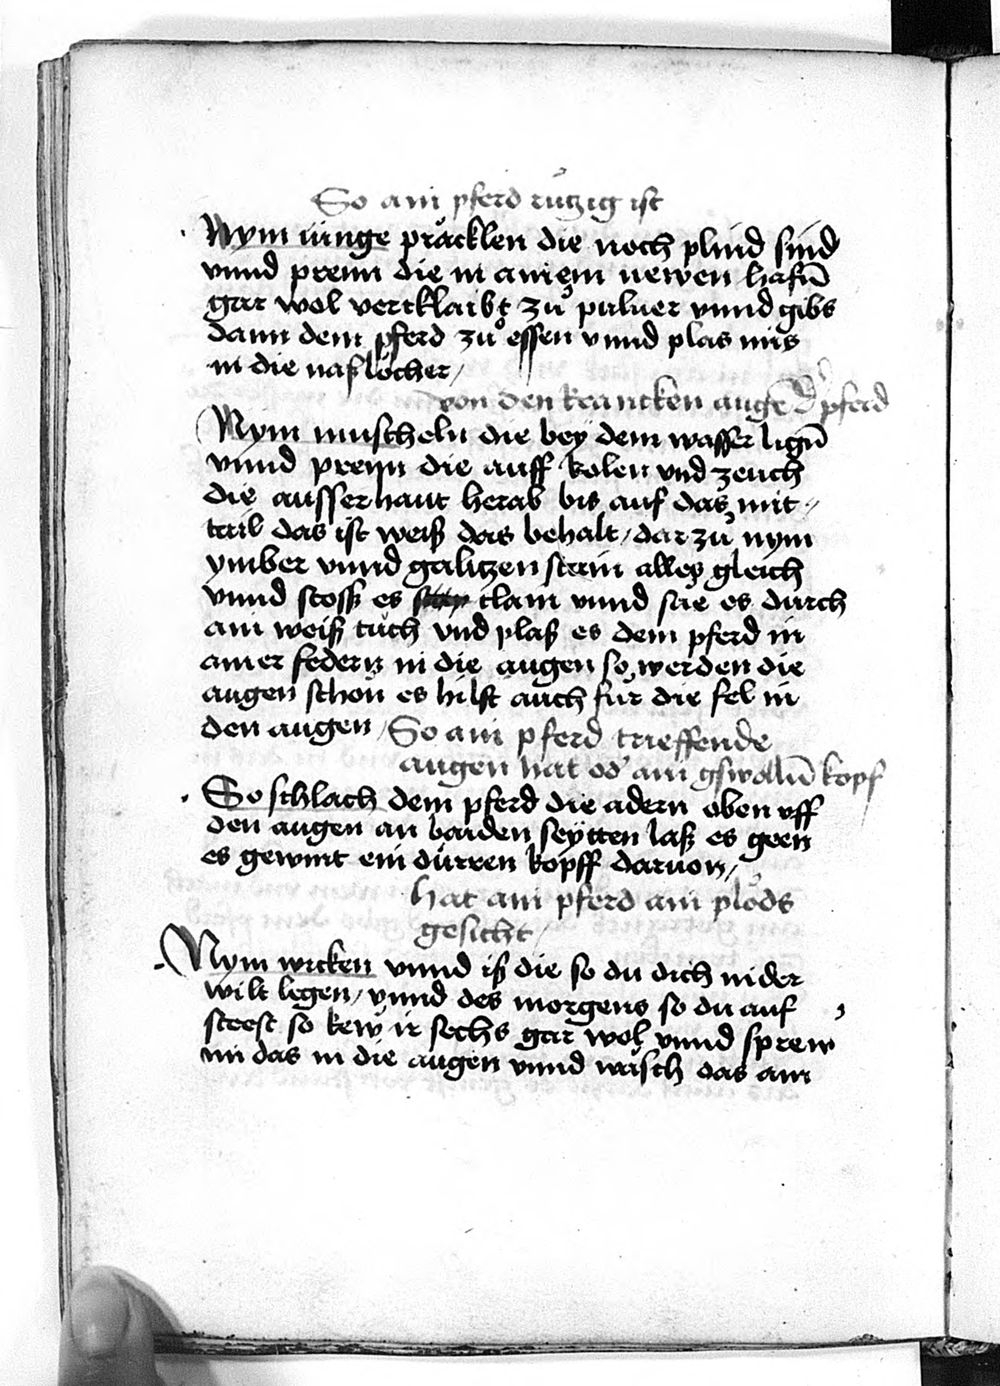 So ain pferd rützig ist
Nym iunge präcklen die noch plind sind
vnnd prenn die in ainem newen hafn̄
gar wol verklaibt zů puluer vnnd gibs
dann dem pferd zů essen vnnd plas mis
in die naslöcher /
von den krancken auge d' pferd
Nym muscheln die bey dem wasser lign̄
vnnd prenn die auff kolen vnd zeuch
die ausser haut herab bis auf das mit-
tail das ist weiß das behalt / dar zů nym
ymber vnnd galitzen stain alles gleich
vnnd stoß es clain vnnd sae es durch
ain weiß tůch vnd plaß es dem pferd in
ainer federn in die augen so werden die
augen schon es hilft auch für die fel in
den augen / So ain pferd trieffende
augen hat od' ain gswolln̄ kopf
So schlach dem pferd die adern oben vff
den augen an baiden seytten laß es geen
es gewint ein dürren kopff daruon /
hat ain pferd ain plöds
gesicht /
Nym wicken vnnd iß die so du dich nider
wilt legen / vnnd des morgens so du auf
steest so kew ir sechs gar wol vnnd sprew
im das in die augen vnnd wäsch das am